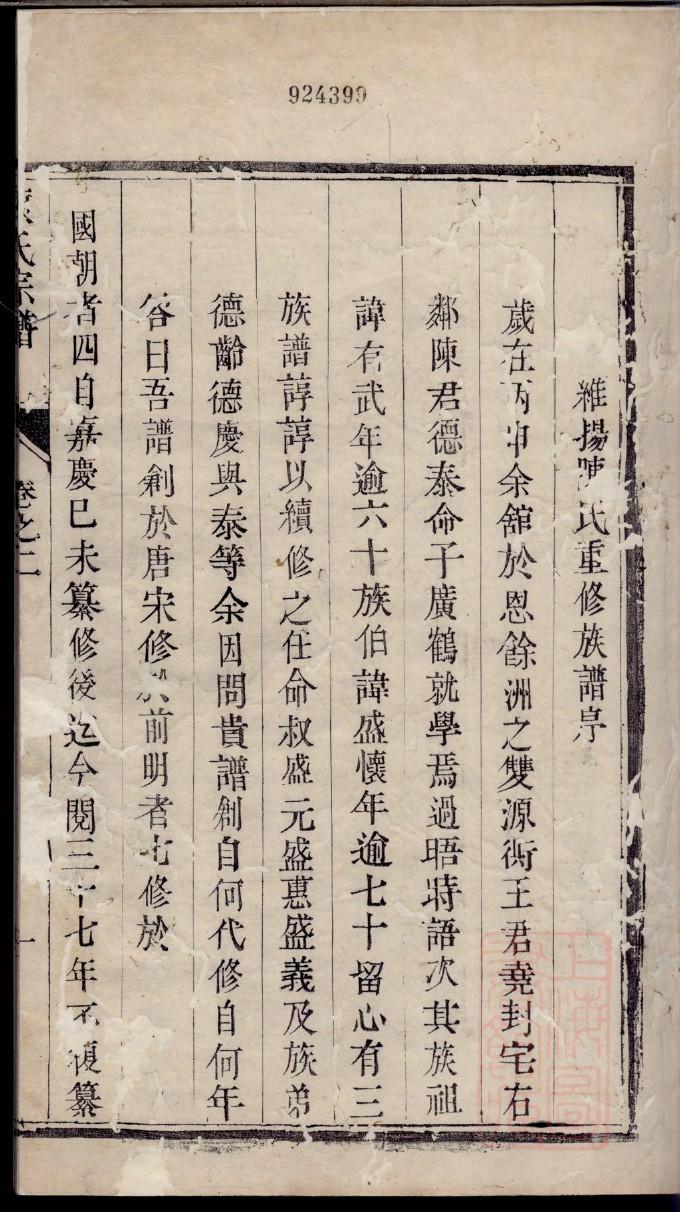 924399
維揚陳氏重修族譜序
歲在丙申余舘於恩餘洲之雙源衖王君堯封宅右
鄰陳君德泰命子廣鶴就學焉過晤時語次其族祖
諱有武年逾六十族伯諱盛懷年逾七十留心有三
族譜諄諄以續修之任命叔盛元盛惠盛義及族弟
德齡德慶與泰等余因問貴譜創自何代修自何年
答曰吾譜創於唐宋修於前明者七修於
國朝者四自嘉慶己未纂修後迄今閱三十七年不復纂
陳氏宗譜
卷之二
一